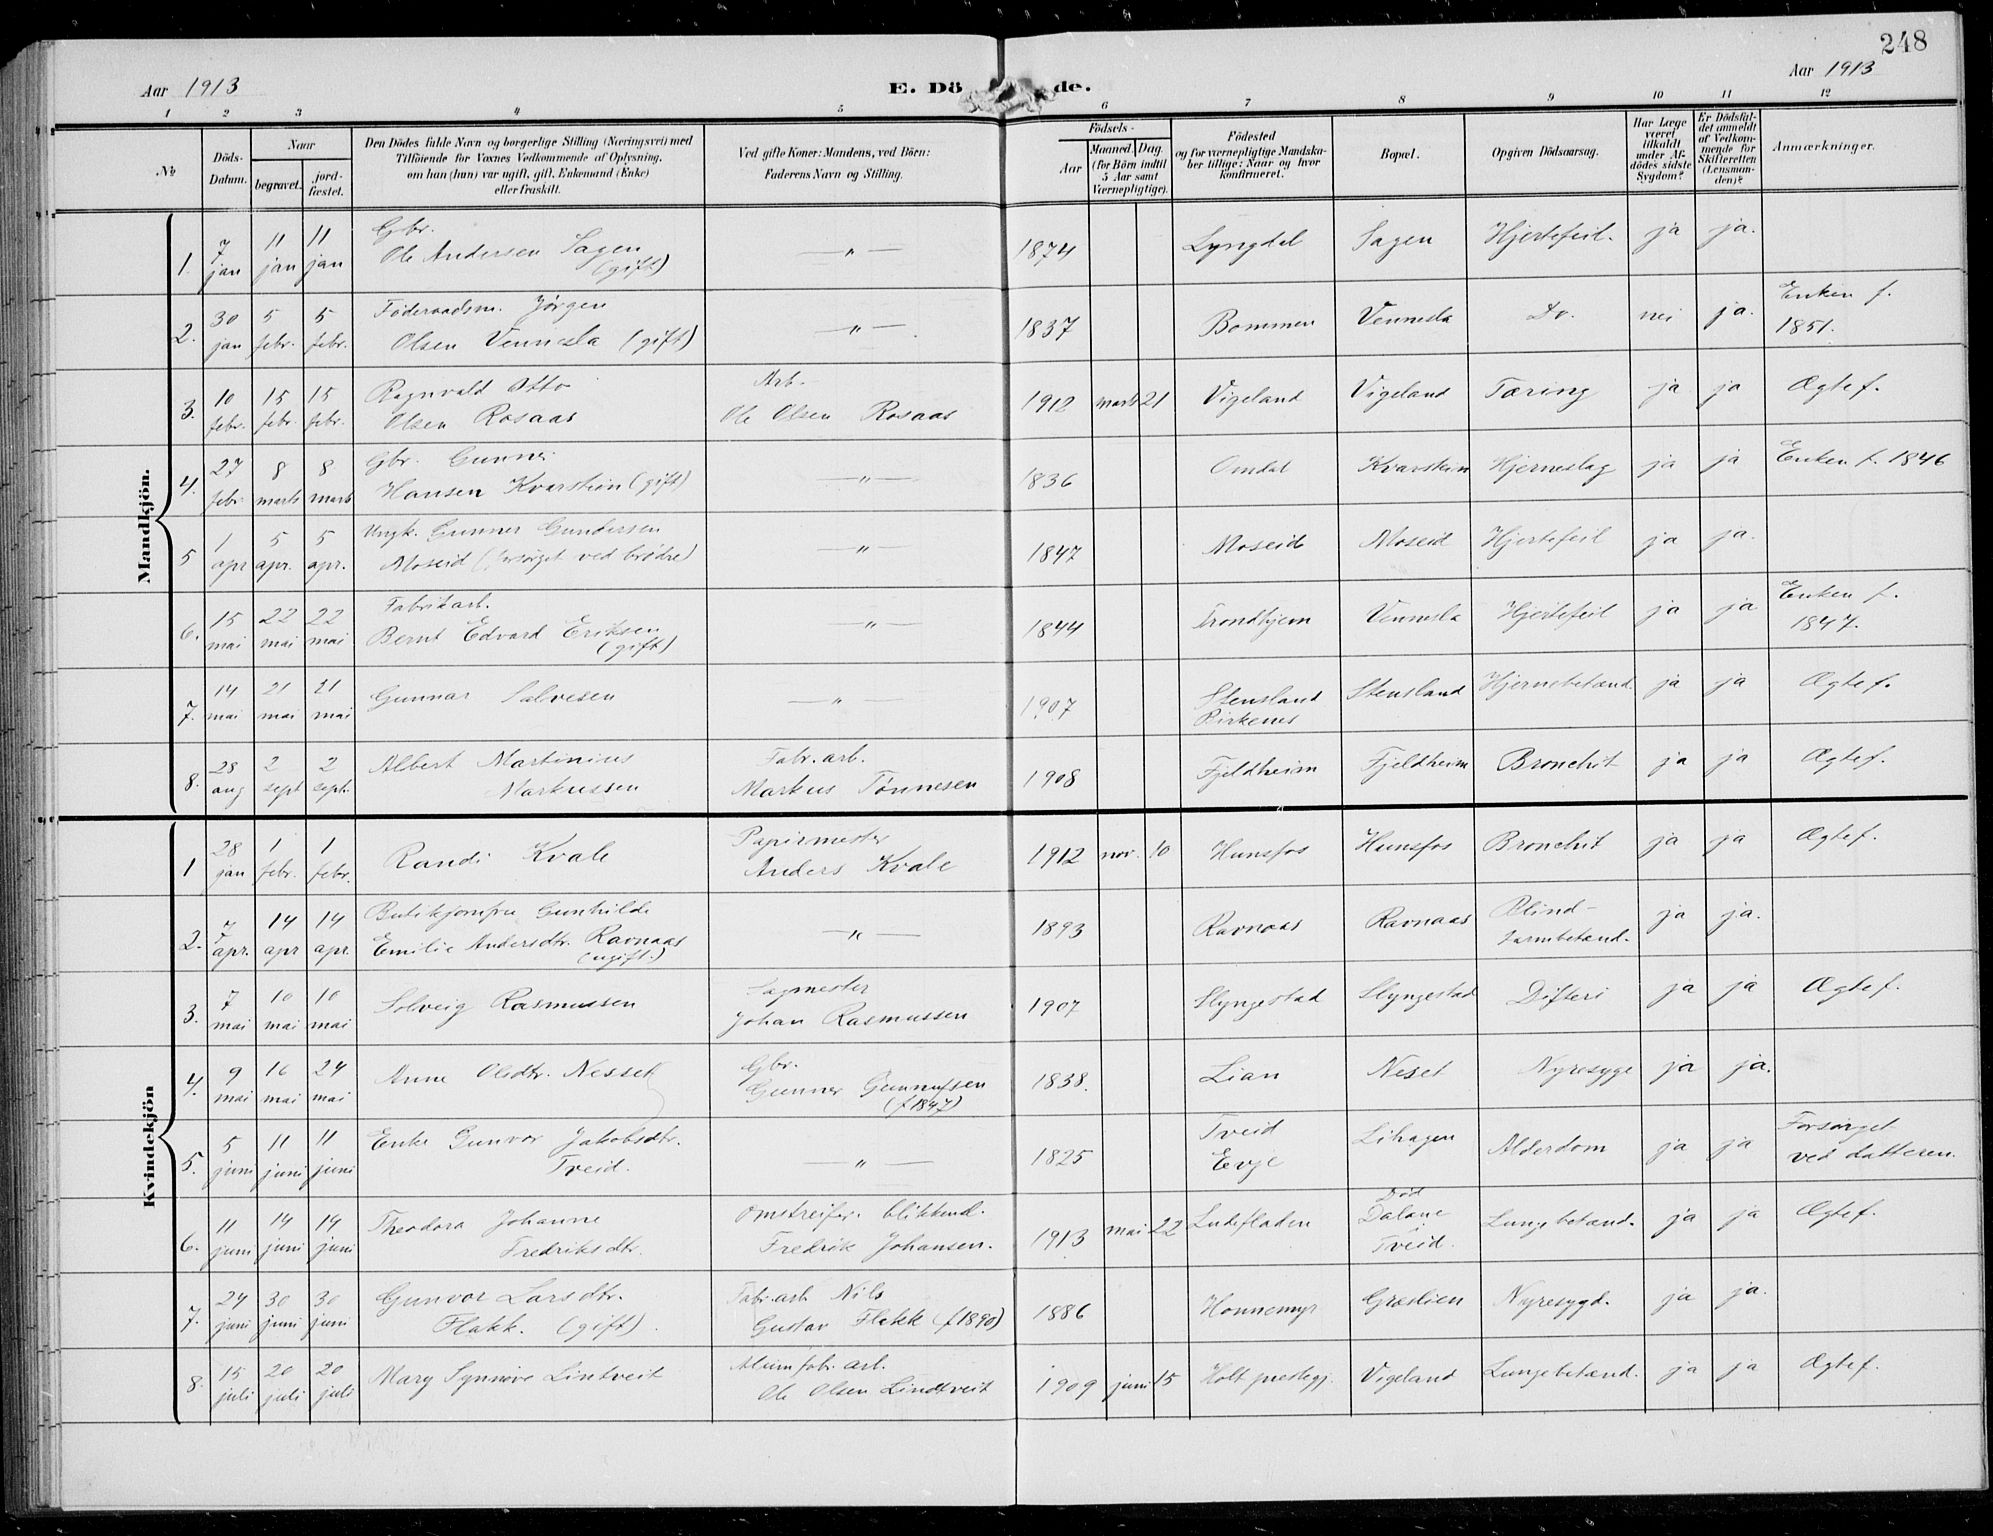 248
Aar 1913
E. Dö de.
Aar 1913
1 2 3 4 5 6 7 8 9 10 11 12
No
Döds-Datum.
Naar
begravet.
jord-fæstet.
Den Dödes fulde Navn og borgerlige Stilling (Næringsvei) med
Tilföiende for Voxnes Vedkommende af Oplysning,
om han (hun) var ugift, gift, Enkemand (Enke)
eller fraskilt.
Ved gifte Koner: Mandens, ved Börn:
Faderens Navn og Stilling.
Födsels-
Aar
Maaned. Dag.
(for Börn indtil
5 Aar samt
Værnepligtige).
Födested
og for værnepligtige Mandska-
ber tillige: Naar og hvor
konfirmeret.
Bopæl.
Opgiven Dödsaarsag.
Har Læge
været
tilkaldt
under Af-
dödes sidste
Sygdom?
Er Dödsfal-
det anmeldt
af Vedkom-
mende for
Skifteretten
(Lensman-
den)?
Anmærkninger.
Mandkjön.
1. 7 jan 11 jan 11 jan Gbr. Ole Andersen Sagen (gift) — " — 1874 Lyngdal Sagen Hjertefeil. ja ja.
2. 30 jan 5 febr. 5 febr. Föderaadsm. Jörgen Olsen Vennesla (gift) — " — 1837 Bommen Vennesla Do. nei ja. Enken f. 1851.
3. 10 febr. 15 febr. 15 febr. Ragnvald Otto Olsen Rosaas Arb. Ole Olsen Rosaas 1912 marts 21 Vigeland Vigeland Tæring ja ja Ægtef.
4. 27 febr 8 marts 8 marts Gbr. Gunner Hansen Kvarstein (gift) — " — 1836 Omdal Kvarstein Hjerneslag ja ja Enken f. 1846
5 1 apr 5 apr. 5 apr. Ungk. Gunner Gundersen Moseid (forsörget ved brödre) — " — 1847 Moseid Moseid Hjertefeil ja ja.
6. 15 mai 22 mai 22 mai Fabrikarb. Bernt Edvard Eriksen (gift) — " — 1844 Trondhjem Vennesla Hjertefeil ja ja Enken f. 1847.
7. 14 mai 21 mai 21 mai Gunnar Salvesen — " — 1907 Stensland Birkenes Stensland Hjernebetænd. ja ja Ægtef.
8. 28 aug 2 sept 2 sept. Albert Martinius Markussen Fabr. arb. Markus Tönnesen 1908 Fjeldheim Fjeldheim Bronchit ja ja Ægtef.
Kvindekjön
1 28 jan 1 febr. 1 febr. Randi Kvale Papirmester Anders Kvale 1912 nov. 10 Hunsfos Hunsfos Bronchit ja ja Ægtef.
2. 7 apr. 14 apr 14 apr. Butikjomfru Gunhilde Emilie Andersdtr. Ravnaas (ugift.) — " — 1893 Ravnaas Ravnaas Blind-tarmbetænd. ja ja.
3. 7 mai 10 mai 10 mai Solveig Rasmussen Sagmester Johan Rasmussen 1907 Slyngestad Slyngestad Difteri ja ja Ægtef.
4. 9 mai 16 mai 24 mai Anne Olsdtr. Nesset Gbr. Gunner Gunnufsen (f 1847) 1838. Lian Neset Nyresyge ja ja.
5. 5 juni 11 juni 11 juni Enke Gunvor Jakobsdtr. Tveid. — " — 1825 Tveid Evje Lihagen Alderdom ja ja Forsörget ved datteren.
6. 11 juni 14 juni 14 juni Theodora Johanne Fredriksdtr. Omstreifer. blikksl. Fredrik Johansen. 1913 mai 22 Ludefladen Död Dalane i Tveid. Lungebetænd. ja ja Ægtef.
7. 24 juni 30 juni 30 juni Gunvor Larsdtr. Flakk. (gift). Fabr. arb. Nils Gustav Flakk (f 1890) 1886 Honnemyr Græslien Nyresygd. ja ja.
8. 15 juli 20 juli 20 juli Mary Synnöve Lintveit Alumfabr. arb. Ole Olsen Lindtveit 1909 juni 15 Holt prestegj. Vigeland Lungebetænd. ja ja Ægtef.